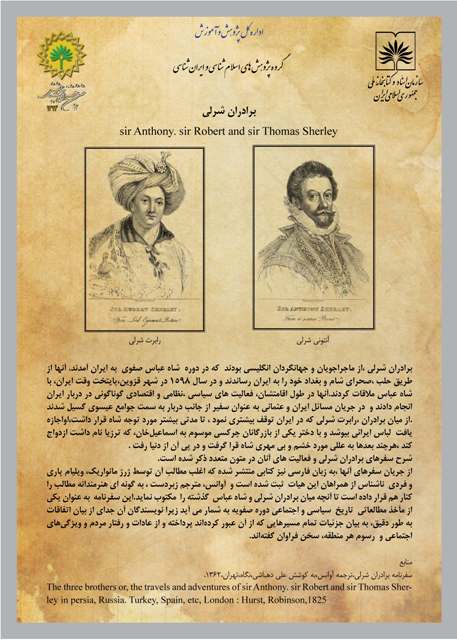 اداره کل پژوهش و آموزش
گروه پژوهش های اسلام شناسی و ایران شناسی
سازمان اسناد و کتابخانه ملی
جمهوری اسلامی ایران
برادران شرلی
sir Anthony. sir Robert and sir Thomas Sherley
SIR ROBERT SHERLEY;
SIR ANTHONY SHERLEY;
رابرت شرلی
آنتونی شرلی
برادران شرلی ،از ماجراجویان و جهانگردان انگلیسی بودند که در دوره شاه عباس صفوی به ایران آمدند. آنها از
طریق حلب ،صحرای شام و بغداد خود را به ایران رساندند و در سال ۱۵۹۸ در شهر قزوین،پایتخت وقت ایران، با
شاه عباس ملاقات کردند.آنها در طول اقامتشان، فعالیت های سیاسی ،نظامی و اقتصادی گوناگونی در دربار ایران
انجام دادند و در جریان مسائل ایران و عثمانی به عنوان سفیر از جانب دربار به سمت جوامع عیسوی گسیل شدند
.از میان برادران ،رابرت شرلی که در ایران توقف بیشتری نمود ، تا مدتی بیشتر مورد توجه شاه قرار داشت،واجازه
یافت لباس ایرانی بپوشد و با دختر یکی از بازرگانان چرکسی موسوم به اسماعیل‌خان، که ترزیا نام داشت ازدواج
کند ،هرچند بعدها به عللی مورد خشم و بی مهری شاه قرا گرفت و در پی آن از دنیا رفت .
شرح سفرهای برادران شرلی و فعالیت های آنان در متون متعدد ذکر شده است.
از جریان سفرهای آنها ،به زبان فارسی نیز کتابی منتشر شده که اغلب مطالب آن توسط ژرژ مانوارینگ، ویلیام پاری
و فردی ناشناس از همراهان این هیات ثبت شده است و آوانس، مترجم زبردست، به گونه ای هنرمندانه مطالب را
کنار هم قرار داده است تا آنچه میان برادران شرلی و شاه عباس گذشته را مکتوب نماید.این سفرنامه به عنوان یکی
از مآخذ مطالعاتی تاریخ سیاسی و اجتماعی دوره صفویه به شمار می آید زیرا نویسندگان آن جدای از بیان اتفاقات
به طور دقیق، به بیان جزئیات تمام مسیرهایی که از آن عبور کرده‌اند پرداخته و از عادات و رفتار مردم و ویژگی‌های
اجتماعی و رسوم هر منطقه، سخن فراوان گفته‌اند.
منابع
سفرنامه برادران شرلی،ترجمه آوانس،به کوشش علی دهباشی،نگاه،تهران،۱۳۶۲.
The three brothers or, the travels and adventures of sir Anthony. sir Robert and sir Thomas Sher-
ley in persia, Russia. Turkey, Spain, etc, London : Hurst, Robinson,1825